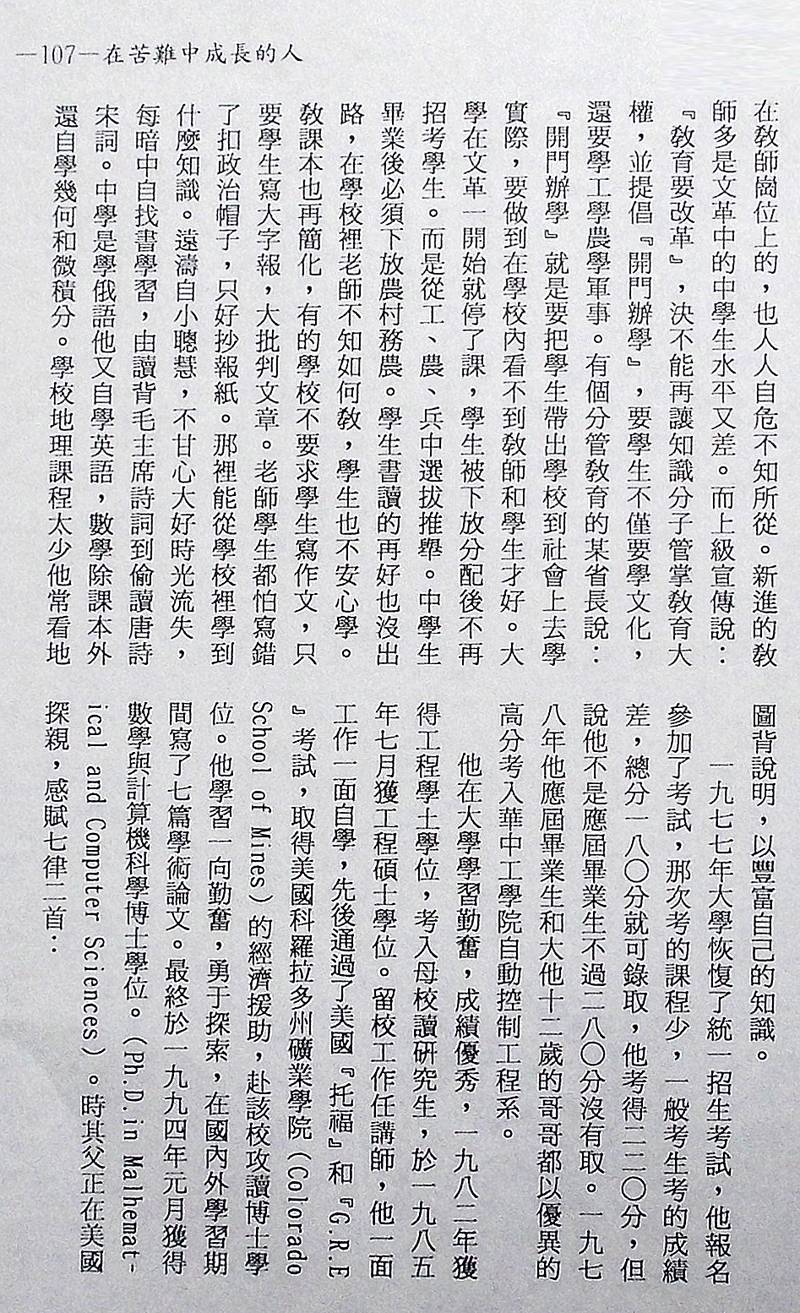 —107—在苦難中成長的人
在教師崗位上的，也人人自危不知所從。新進的教
師多是文革中的中學生水平又差。而上級宣傳說：
『教育要改革』，決不能再讓知識分子管掌教育大
權，並提倡『開門辦學』，要學生不僅要學文化，
還要學工學農學軍事。有個分管教育的某省長說：
『開門辦學』就是要把學生帶出學校到社會上去學
實際，要做到在學校內看不到教師和學生才好。大
學在文革一開始就停了課，學生被下放分配後不再
招考學生。而是從工、農、兵中選拔推舉。中學生
畢業後必須下放農村務農。學生書讀的再好也沒出
路，在學校裡老師不知如何教，學生也不安心學。
教課本也再簡化，有的學校不要求學生寫作文，只
要學生寫大字報，大批判文章。老師學生都怕寫錯
了扣政治帽子，只好抄報紙。那裡能從學校裡學到
什麼知識。遠濤自小聰慧，不甘心大好時光流失，
每暗中自找書學習，由讀背毛主席詩詞到偷讀唐詩
宋詞。中學是學俄語他又自學英語，數學除課本外
還自學幾何和微積分。學校地理課程太少他常看地
圖背說明，以豐富自己的知識。
一九七七年大學恢復了統一招生考試，他報名
參加了考試，那次考的課程少，一般考生考的成績
差，總分一八〇分就可錄取，他考得二二〇分，但
說他不是應屆畢業生不過二八〇分沒有取。一九七
八年他應屆畢業生和大他十二歲的哥哥都以優異的
高分考入華中工學院自動控制工程系。
他在大學學習勤奮，成績優秀，一九八二年獲
得工程學士學位，考入母校讀研究生，於一九八五
年七月獲工程碩士學位。留校工作任講師，他一面
工作一面自學，先後通過了美國『托福』和『G.R.E
』考試，取得美國科羅拉多州礦業學院（Colorado
School of Mines）的經濟援助，赴該校攻讀博士學
位。他學習一向勤奮，勇于探索，在國內外學習期
間寫了七篇學術論文。最終於一九九四年元月獲得
數學與計算機科學博士學位。（Ph.D.in Malhemat-
ical and Computer Sciences）。時其父正在美國
探親，感賦七律二首：